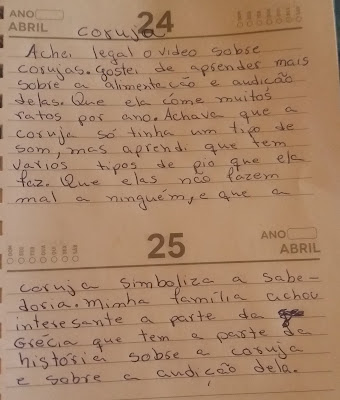 ANO
ABRIL
24
coruja
Achei legal o video sobre
corujas. Gostei de aprender mais
sobre a alimentação e audição
delas. Que ela come muitos
ratos por ano. Achava que a
coruja só tinha um tipo de
som, mas aprendi que tem
varios tipos de pio que ela
faz. Que elas não fazem
mal a ninguém, e que a
25
ANO
ABRIL
coruja simboliza a sabe-
doria. Minha família achou
interesante a parte da
Grécia que tem a parte da
história sobre a coruja
e sobre a audição dela.